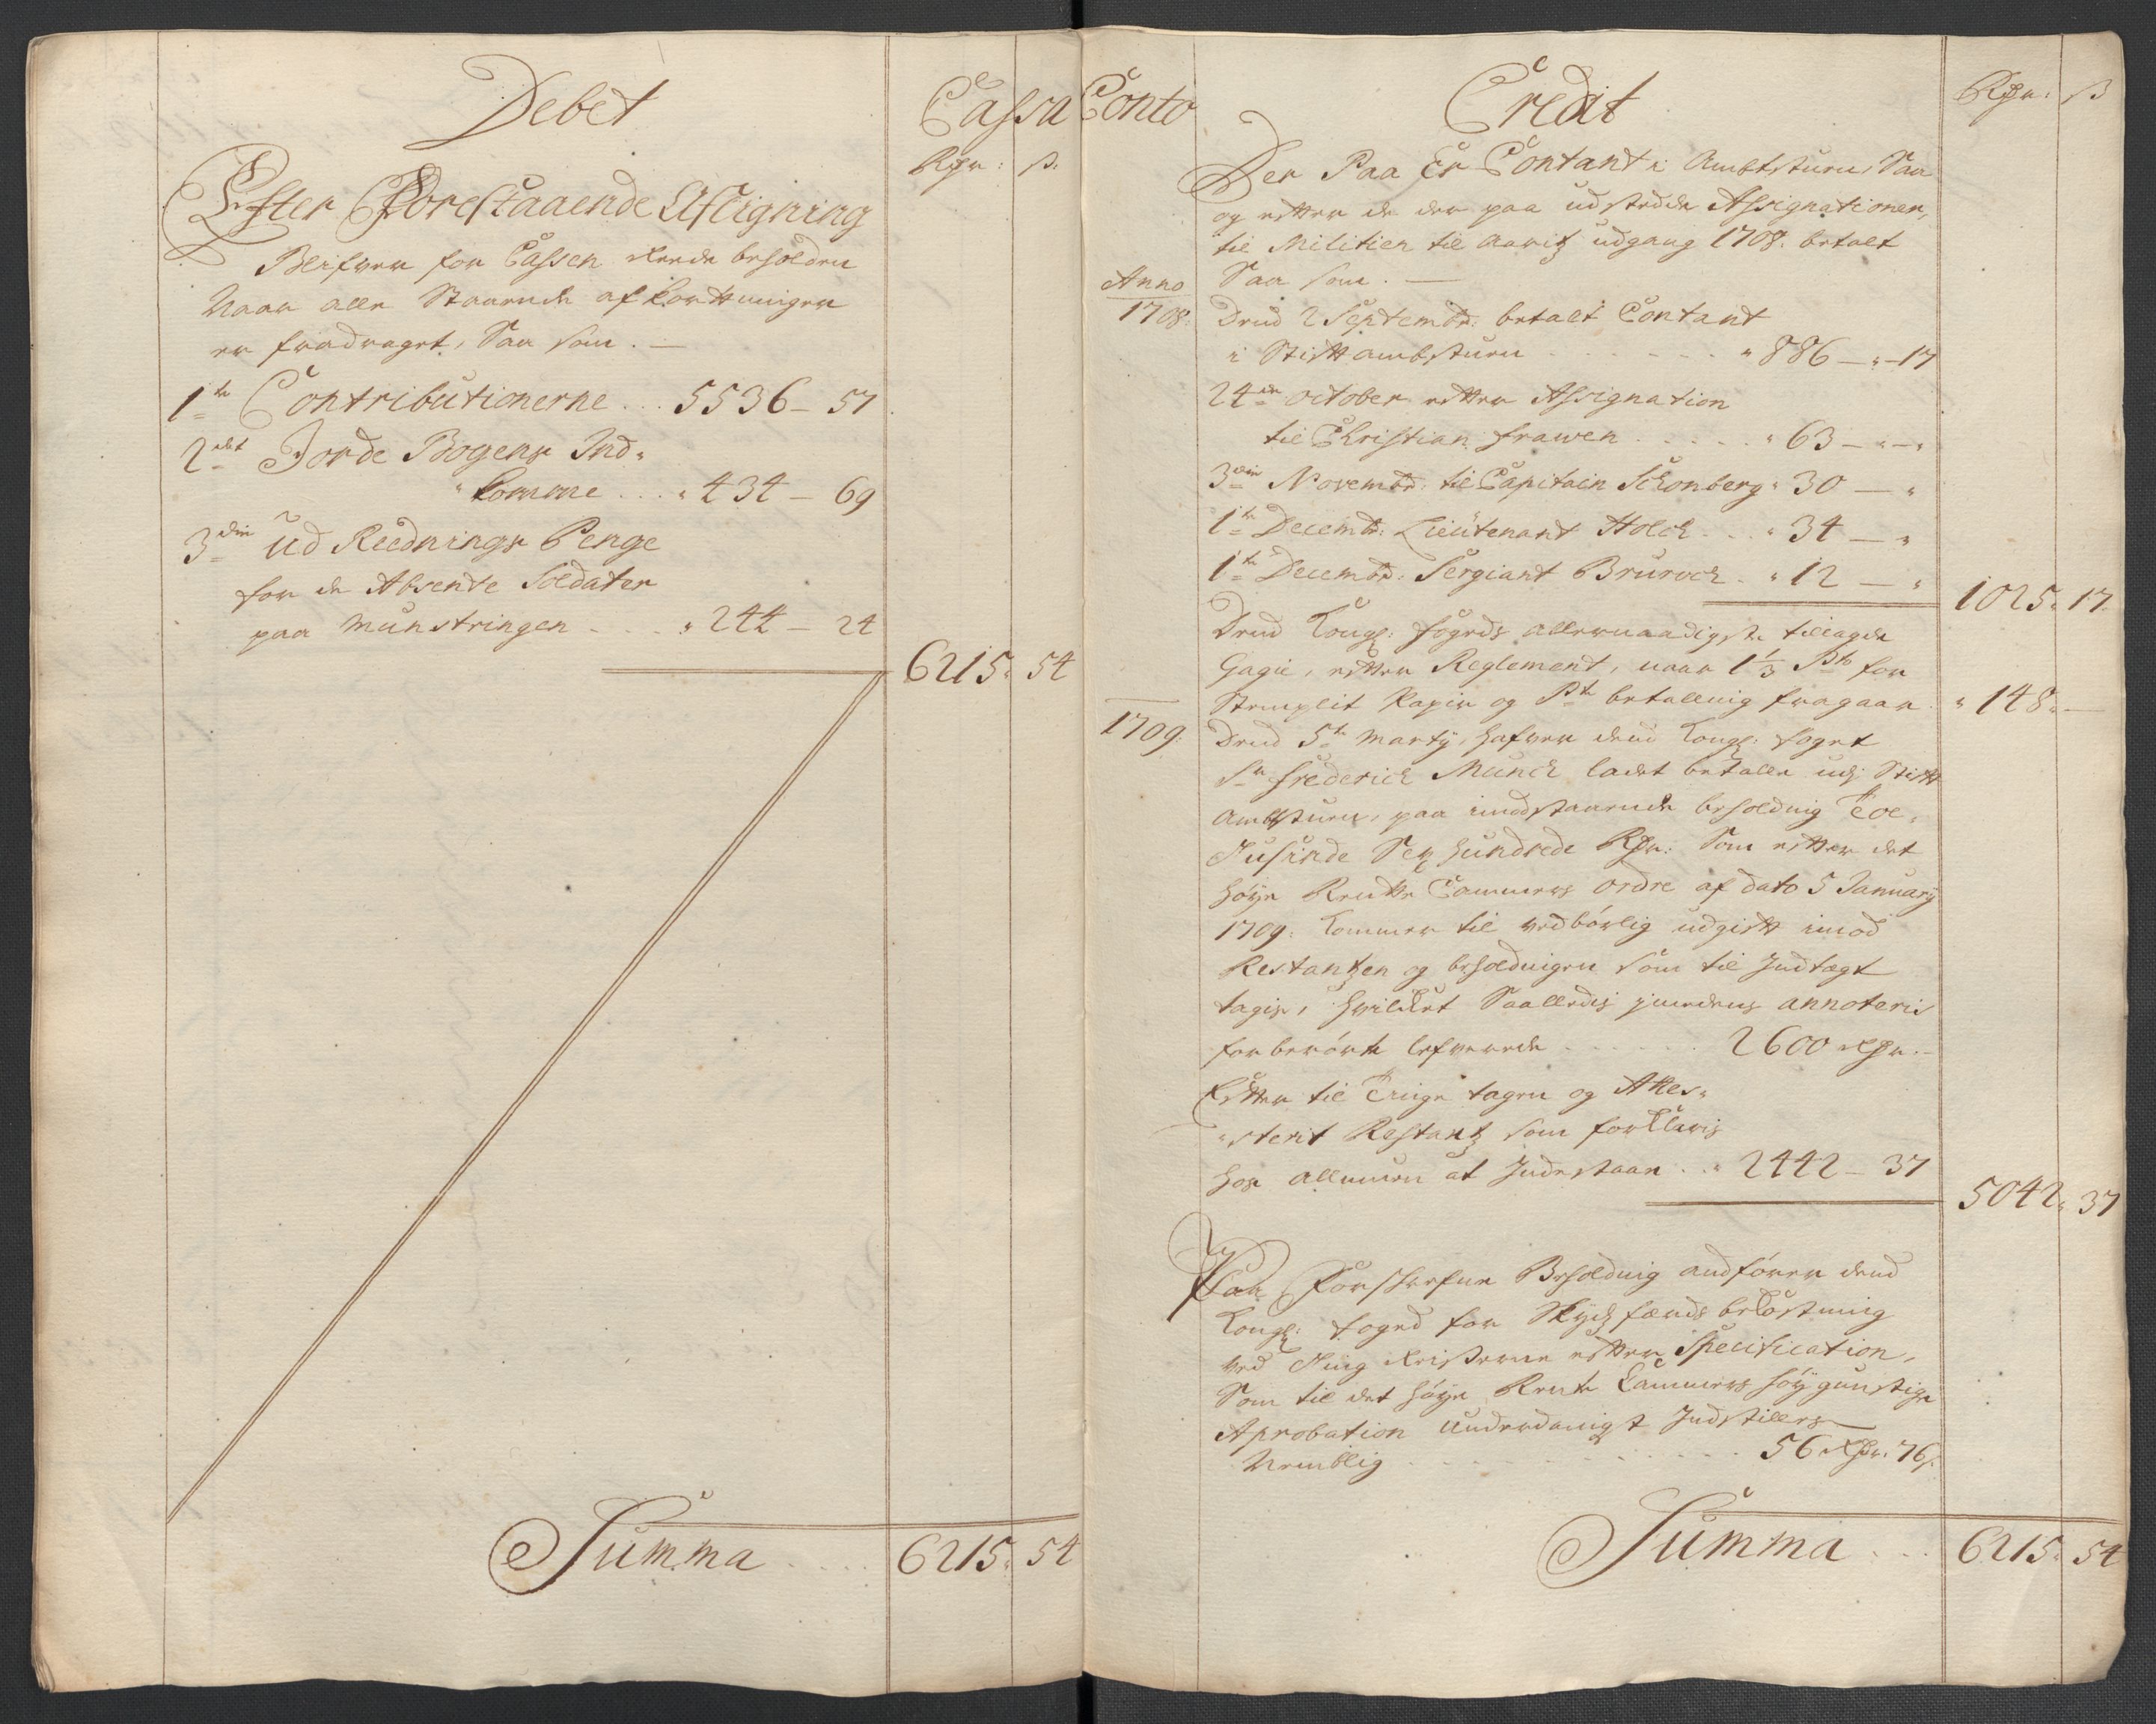 Debet
Cassa
Rdr: ß.
Efter Forestaaende Afligning
Blifver for Cassen Reede beholden
Naar alle Staaende afkortninger
er fradraget, Saa som. —
1te Contributionerne ... 5536 — 57
2det Jorde Bogens Ind-
komme .... 434 — 69
3die Ud Rednings Penge
for de Absente Soldater
paa Munstringen .... 244 — 24
6215. 54
Summa .... 6215. 54
Conto
Credit
Rdr: ß
Der Paa Er Contant i Ambtstuen, Saa
og efter de der paa udstedde Assignationer,
til Militien til Aaritz udgang 1708. betalt
Anno Saa som. —
1708. Dend 2 Septembr: betalt Contant
i Stiftambtstuen . . . . . . 886 — 17
24de October efter Assignation
til Christian frawen . . . . . 63 — „ — „
3die Novembr: til Capitain Schonberg 30 — „
1te Decembr: Lieutenant Holck . . . 34 — „
1te Decembr: Sergiant Brurock . 12 — „
1025. 17.
Dend Kongl: fogeds allernaadigste tillagde
Gagie, efter Reglement, naar 1 1/3 Pto for
Stemplit Papir og Pto betalling fragaar
148. —
1709. Dend 5te Marty, hafver dend Kongl: foget
Sr Frederich Munch ladet betalle udj Stift
Ambtstuen, paa imodstaaende beholdnig Toe
Tusinde Sex Hundrede Rdr: Som efter det
Høye Rentte Cammers Ordre af dato 5 January
1709. kommer til vedbørlig udgift imod
Restantzen og beholdnigen som til Indtegt
tagis, hvilket Saalledis jmedens annoteris
forberørte lefverede . . . . . . 2600 Rdr. —
Efter til Tinge tagen og Attes-
sterit Restantz som forklaris
hos Allmuen at Indestaar . . 2442 — 37
5042. 37
Paa Forskrefne Beholdnig andfører dend
Kongl: foged for Skydz færds bekostning
ved Ting Reiserne efter Specification,
Som til det Høye Rente Cammers Høygunstige
Aprobation Underdanigst Indstilles
Nemblig . . . . . . . . . . . 56 Rdr. 76ß.
Summa . . . 6215. 54